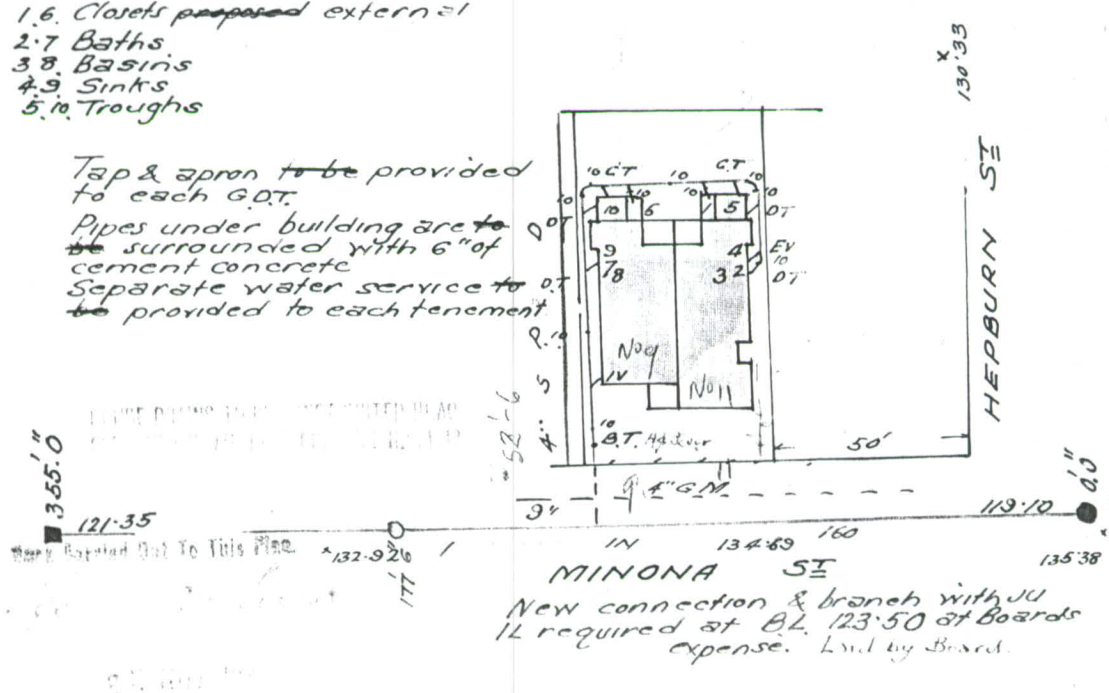 1.6. Closets proposed external
2.7 Baths
3 8. Basins
4.9 Sinks
5.10. Troughs
Tap & apron to be provided
to each G.D.T.
Pipes under building are to
be surrounded with 6" of
cement concrete
Separate water service to
be provided to each tenement
130'33
HEPBURN ST
10 G.T
10
G.T
10
10
10
10
10
DT
D
10
6
1
5
DT
9
4
EV
10
7 8
3 2
DT
D.T
P.
10
No 9
No 11
IV
S
4"
52'-6
10
B.T.
50'
9"
4" G.M
355'.0"
0'.0"
121.35
119.10
Work Carried Out To This Plan
132.92
177'
1 IN
134.89
160
135.38
MINONA ST
New connection & branch with
IL required at B.L. 123.50 at Boards
expense. Laid by Board.